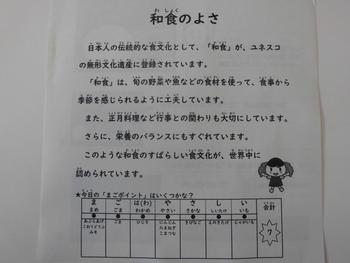 和食のよさ
日本人の伝統的な食文化として、「和食」が、ユネスコ
の無形文化遺産に登録されています。
「和食」は、旬の野菜や魚などの食材を使って、食事から
季節を感じられるように工夫しています。
また、正月料理など行事との関わりも大切にしています。
さらに、栄養のバランスにもすぐれています。
このような和食のすばらしい食文化が、世界中に
認められています。
★今日の「まごポイント」はいくつかな?
ま ご は(わ) や さ し い 合計
まめ ごま わかめ やさい さかな しいたけ いも
● ● ● ● ● ● ●
あぶらあげ ごま ひじき にんじん さば えのきたけ じゃがいも 7
こおりどうふ たまねぎ
みそ こまつな